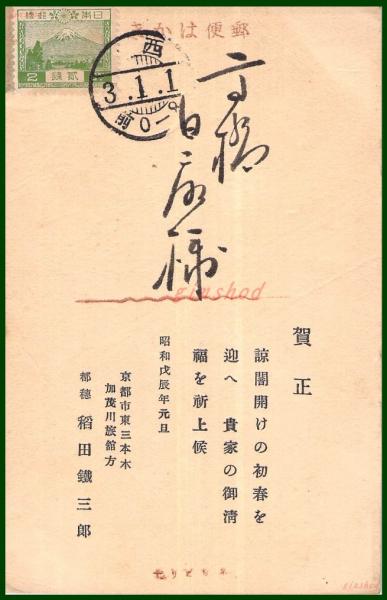 郵便はがき
日本郵便
2 貳銭
西
3.1.1
前0-
高橋
様
ginshod
賀正
諒闇開けの初春を
迎へ 貴家の御清
福を祈上候
昭和戊辰年元旦
京都市東三本木
加茂川旅舘方
都穂 稻田鐵三郎
ginshod